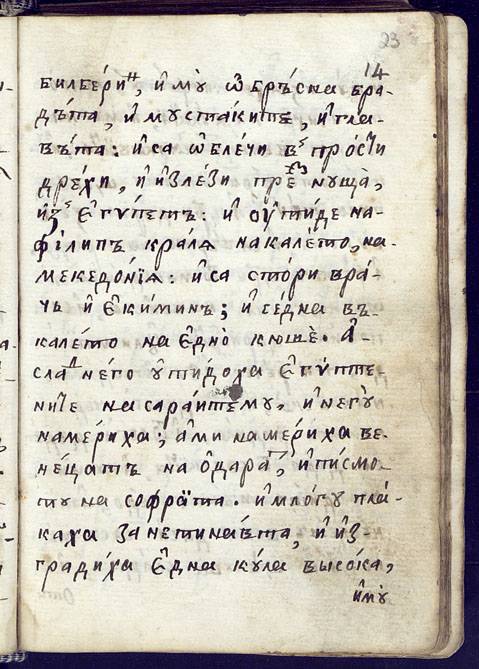 23
14
билбери́н, и҆му̀ ѡ҆бръ́сна бра-
дъ́та, и҆ мустаките, и҆ гла-
въ́та: и҆ са ѡ҆бле́чи въ про́сти
дрехи, и҆ и҆зле́зи през нуща̀,
и҆зъ є҆гѵ́петъ: и҆ ѹ҆ти́де на-
фили́пъ кра́лѧ накале́то, на-
македо́нїѧ: и҆ са сто́ри вра́-
чь и҆ є҆ки́минъ; и҆ се́дна въ-
кале́то на є҆дно̀ кюшѐ. А҆
слад него у҆ти́доха є҆гѵ́пте-
ните на сара́итему, и҆ негу̀
намѣ́риха; а҆ми наме́риха ве-
не́цатъ на ѻ҆дара̀, и҆ писмо
ту на софрӓта. и҆ мло́гу пла́-
каха за нетина́вта, и҆ и҆з-
гради́ха є҆дна ку́ла висо́ка,
и҆му̀